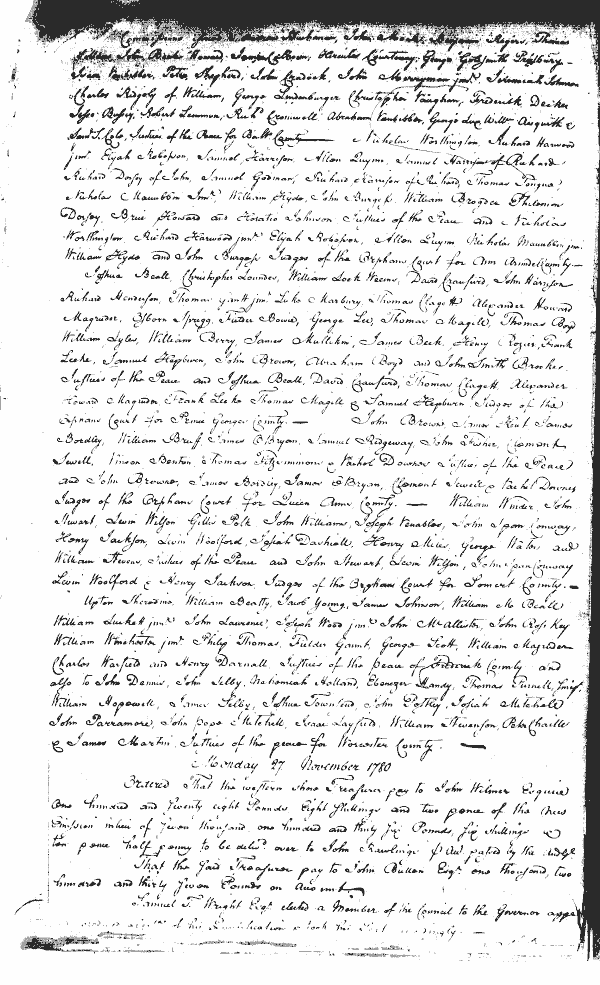 Commissions Buchanan, John Moale, Benjamin Rogers, Thomas
John Beale Howard, James Calhoun, Hercules Courtenay, George Goldsmith Presbury
Isaac Vanbibber, Peter Shepherd, John Cradock, John Merryman junr. Jeremiah Johnson
Charles Ridgely of William, George Lindenburger Christopher Vaughan, Frederick Decker
Jesse Bussey, Robert Lemmon, Richd. Cromwell Abraham Vanbibber, George Lux Willm. Aisquith &
Saml. J. Cole, Justices of the Peace for Balt. County — Nicholas Worthington, Richard Harwood
junr. Elijah Robosson, Samuel Harrison, Allen Quynn, Samuel Harrison of Richard
Richard Dorsey of John, Samuel Godman, Richard Harrison of Richard, Thomas Tongue
Nicholas Maccubbin Junr. William Hyde, John Burgess, William Brogden Philemon
Dorsey, Brice Howard and Horatio Johnson Justices of the Peace and Nicholas
Worthington, Richard Harwood junr. Elijah Robosson, Allen Quynn Nicholas Maccubbin junr.
William Hyde and John Burgess Judges of the Orphans Court for Ann Arundel County —
Joshua Beall, Christopher Lowndes, William Lock Weems, David Craufurd, John Harrison
Richard Henderson, Thomas Gantt junr. Luke Marbury, Thomas Clagett Alexander Howard
Magruder, Osborn Sprigg, Fielder Bowie, George Lee, Thomas Magill, Thomas Boyd
William Lyles, William Berry, James Mullikin, James Beck, Henry Rozier, Frank
Leeke, Samuel Hepburn, John Brown, Abraham Boyd and John Smith Brookes
Justices of the Peace and Joshua Beall, David Craufurd, Thomas Clagett, Alexander
Howard Magruder, Frank Leeke Thomas Magill & Samuel Hepburn Judges of the
Orphans Court for Prince Georges County. — John Browne James Kent James
Bordley, William Bruff James OBryan, Samuel Ridgeway, John Fisher, Clement
Sewell, Vinson Benton, Thomas Fitzsimmons & Vachel Downes Justices of the Peace
and John Browne, James Bordley, James OBryan, Clement Sewell & Vachel Downes
Judges of the Orphans Court for Queen Anns County. — William Winder, John
Stewart, Levin Wilson Gillis Polk John Williams, Joseph Venables, John Span Conway,
Henry Jackson, Levin Woolford, Josiah Dashiell, Henry Miles, George Waters, and
William Stevens, Justices of the Peace and John Stewart, Levin Wilson, John Span Conway
Levin Woolford & Henry Jackson Judges of the Orphans Court for Somerset County. —
Upton Sheredine, William Beatty, Jacob Young, James Johnson, William M. Beall
William Luckett junr. John Lawrence, Joseph Wood junr. John McAllister, John Ross Key
William Winchester junr. Philip Thomas, Fielder Gaunt, George Scott, William Magruder
Charles Warfield and Henry Darnall, Justices of the peace of Frederick County and
also to John Dennis, John Selby, Nehemiah Holland, Ebenezer Handy, Thomas Purnell,
William Hopewell, James Selby, Joshua Townsend, John Postley, Josiah Mitchell
John Parramore, John Pope Mitchell, Isaac Layfield, William Stevenson, Peter Chaille
& James Martin, Justices of the peace for Worcester County. —
Monday 27 November 1780
Ordered That the western shore Treasurer pay to John Wilmer Esquire
One hundred and Twenty eight Pounds Eight Shillings and two pence of the new
Emission in lieu of Seven thousand one hundred and thirty Six Pounds, Six shillings &
ten pence half penny to be deliv'd over to John Rawlings &
That the said Treasurer pay to John Bullen Esqr. one thousand, two
hundred and thirty Seven Pounds on Account
Samuel T. Wright Esqr. elected a Member of the Council to the Governor
of his Qualification & took his Seat accordingly. —